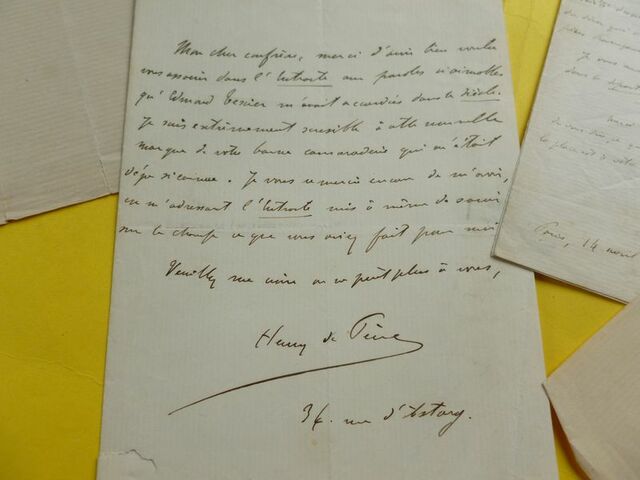 Mon cher confrère, merci d'avoir bien voulu
vous associer dans l'Entracte aux paroles si aimables
qu'Edmond Texier m'avait accordées dans le Siècle.
Je suis extrêmement sensible à cette nouvelle
marque de votre bonne camaraderie qui m'était
déjà si connue. Je vous remercie encore de m'avoir,
en m'adressant l'Entracte mis à même de savoir
sur le champ ce que vous aviez fait pour moi
Veuillez me croire on ne peut plus à vous,
Henry de Pène
36. rue d'Astorg.
Je vous
merci
Paris, 14